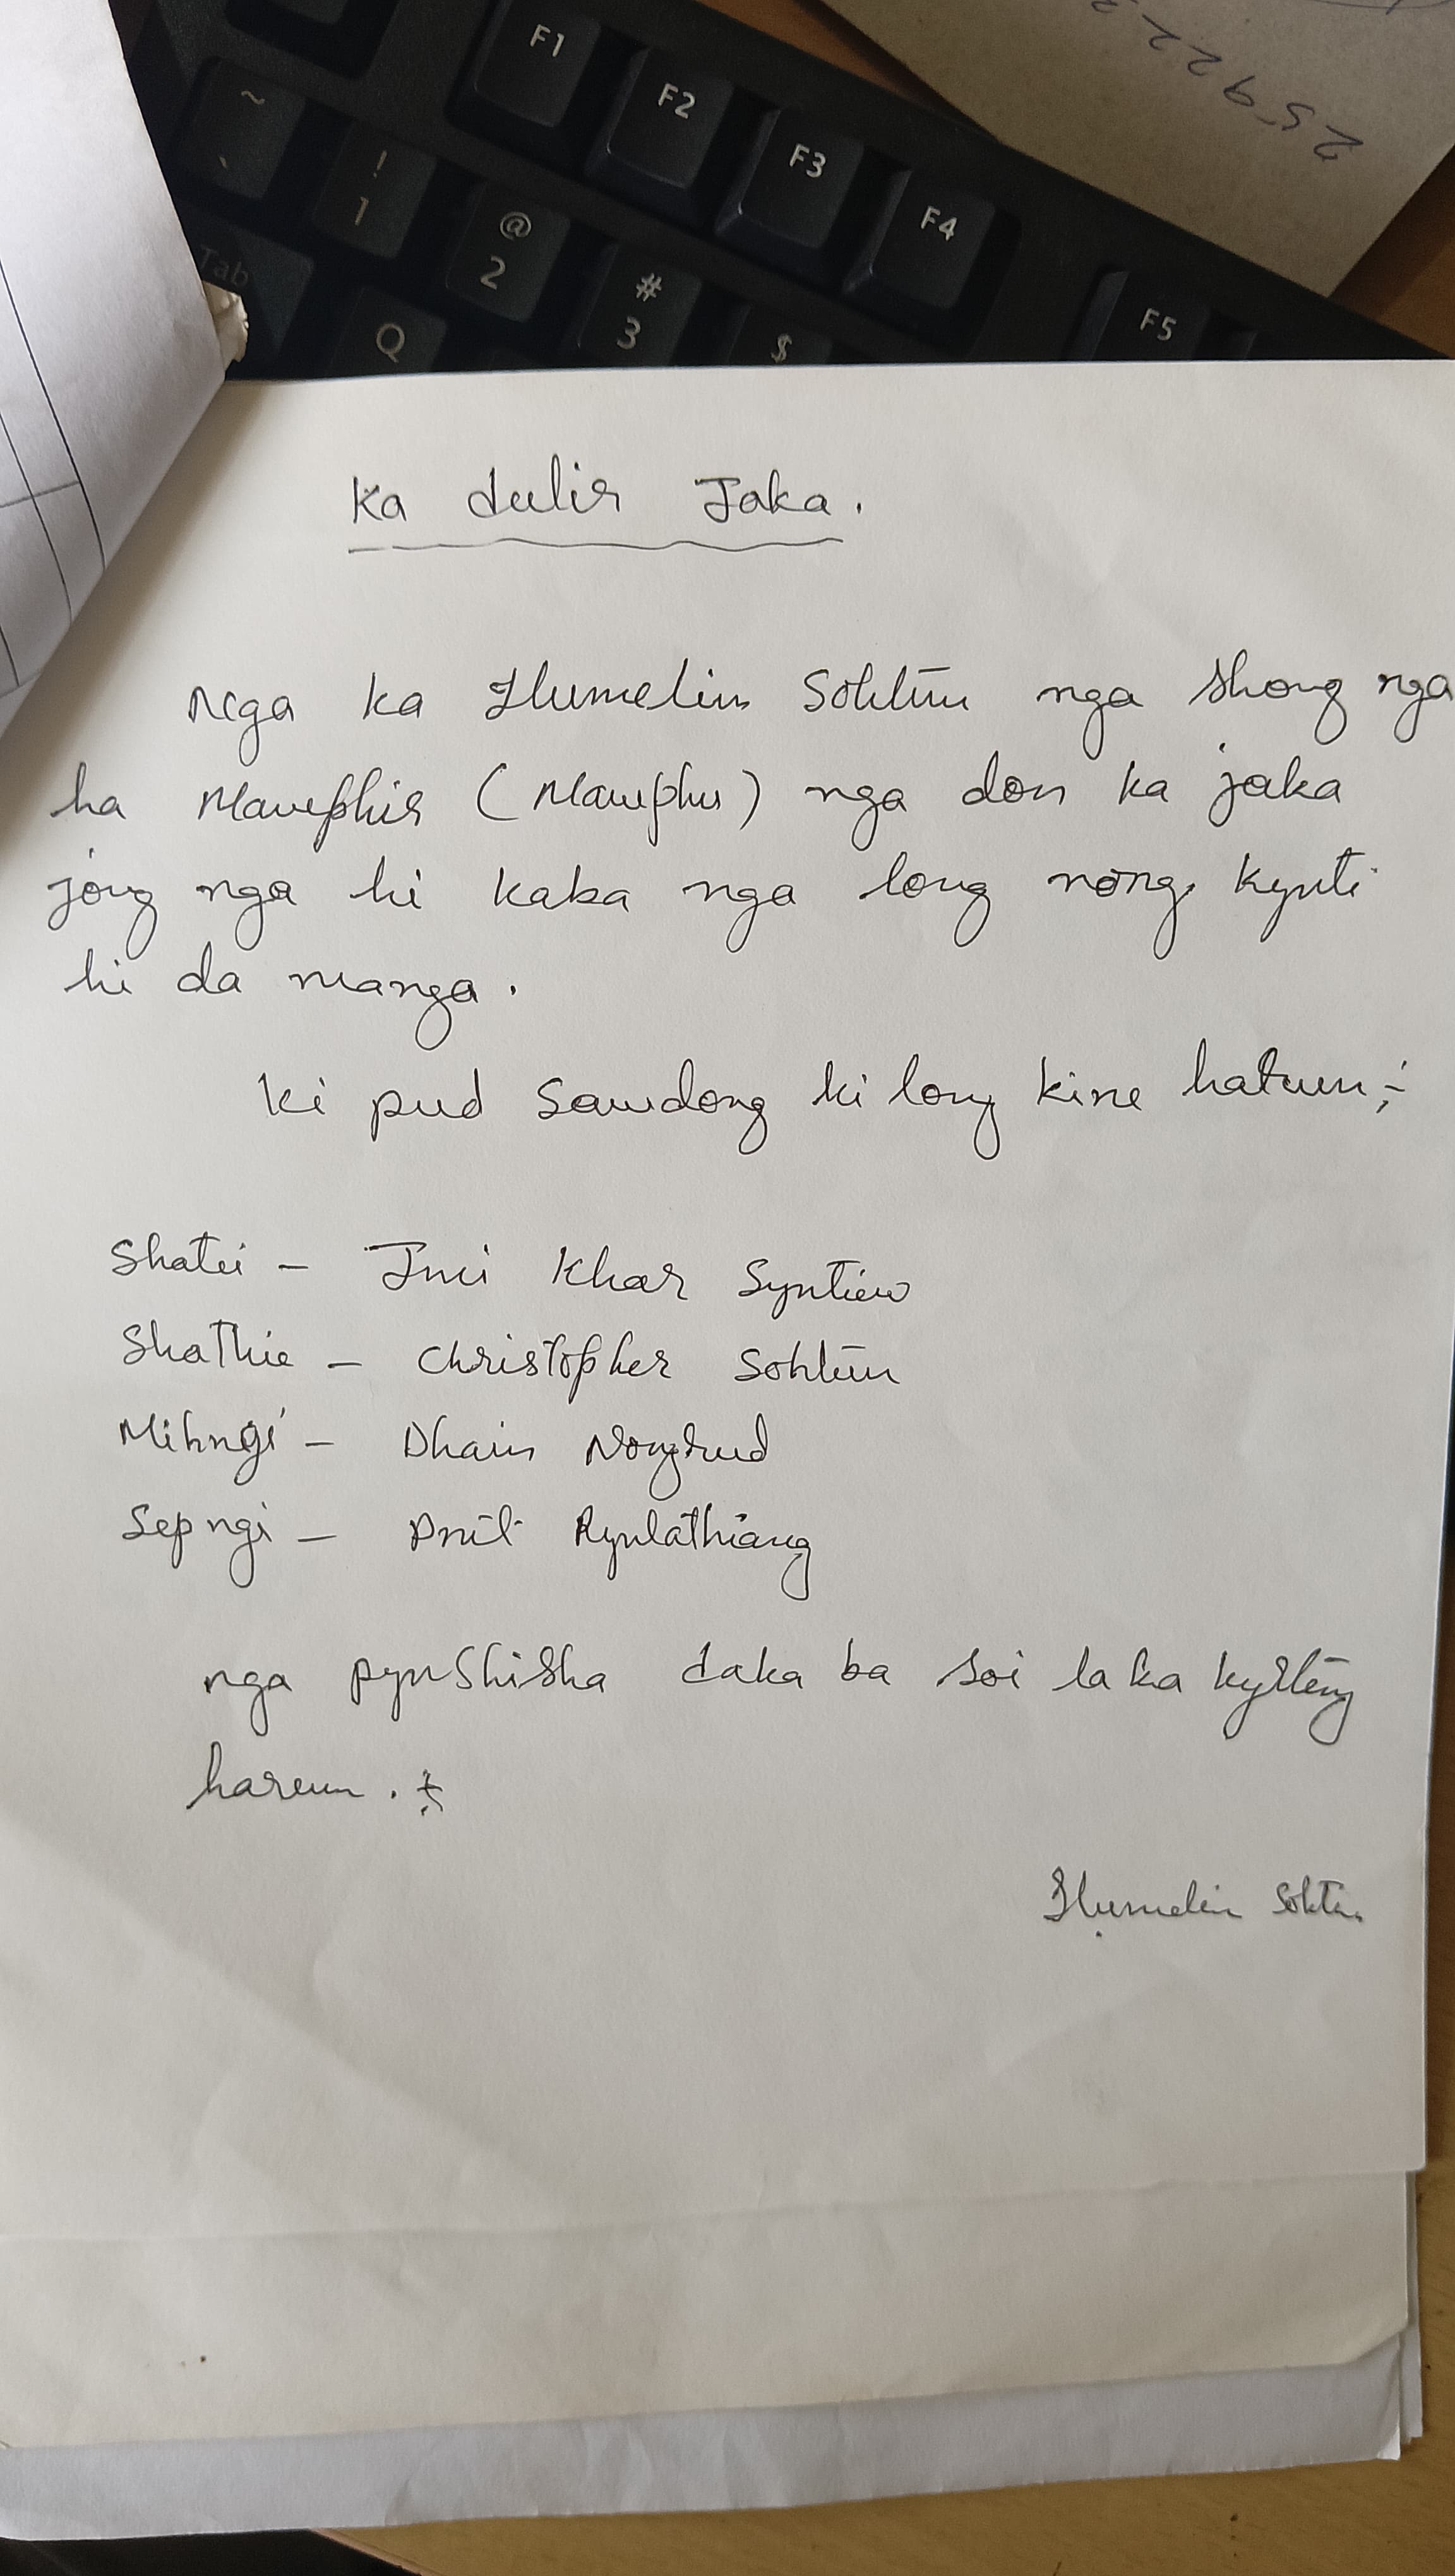 25922
F1
F2
F3
F4
F5
~
`
!
1
@
2
#
3
$
Tab
Q
Ka dulir Jaka.
Nga ka Humelin Sohtun nga shong nga
ha Mawphir (Mawphu) nga don ka jaka
jong nga hi kaba nga long nong kynti
hi da manga.
Ki pud sawdong ki long kine hatum;-
Shatei - Jmi Khar Syntiew
Shathie - Christopher Sohtun
Mihngi - Dhain Nongrud
Sepngi - Dnit Rynlathiang
nga pynshisha daka ba soi la ka kyrteng
harum.
Humelin Sohtun